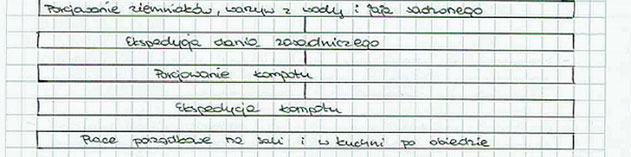 Porcjowanie ziemniaków, warzyw z wody i jaja sadzonego
Ekspedycja dania zasadniczego
Porcjowanie kompotu
Ekspedycja kompotu
Prace porządkowe na sali i w kuchni po obiedzie